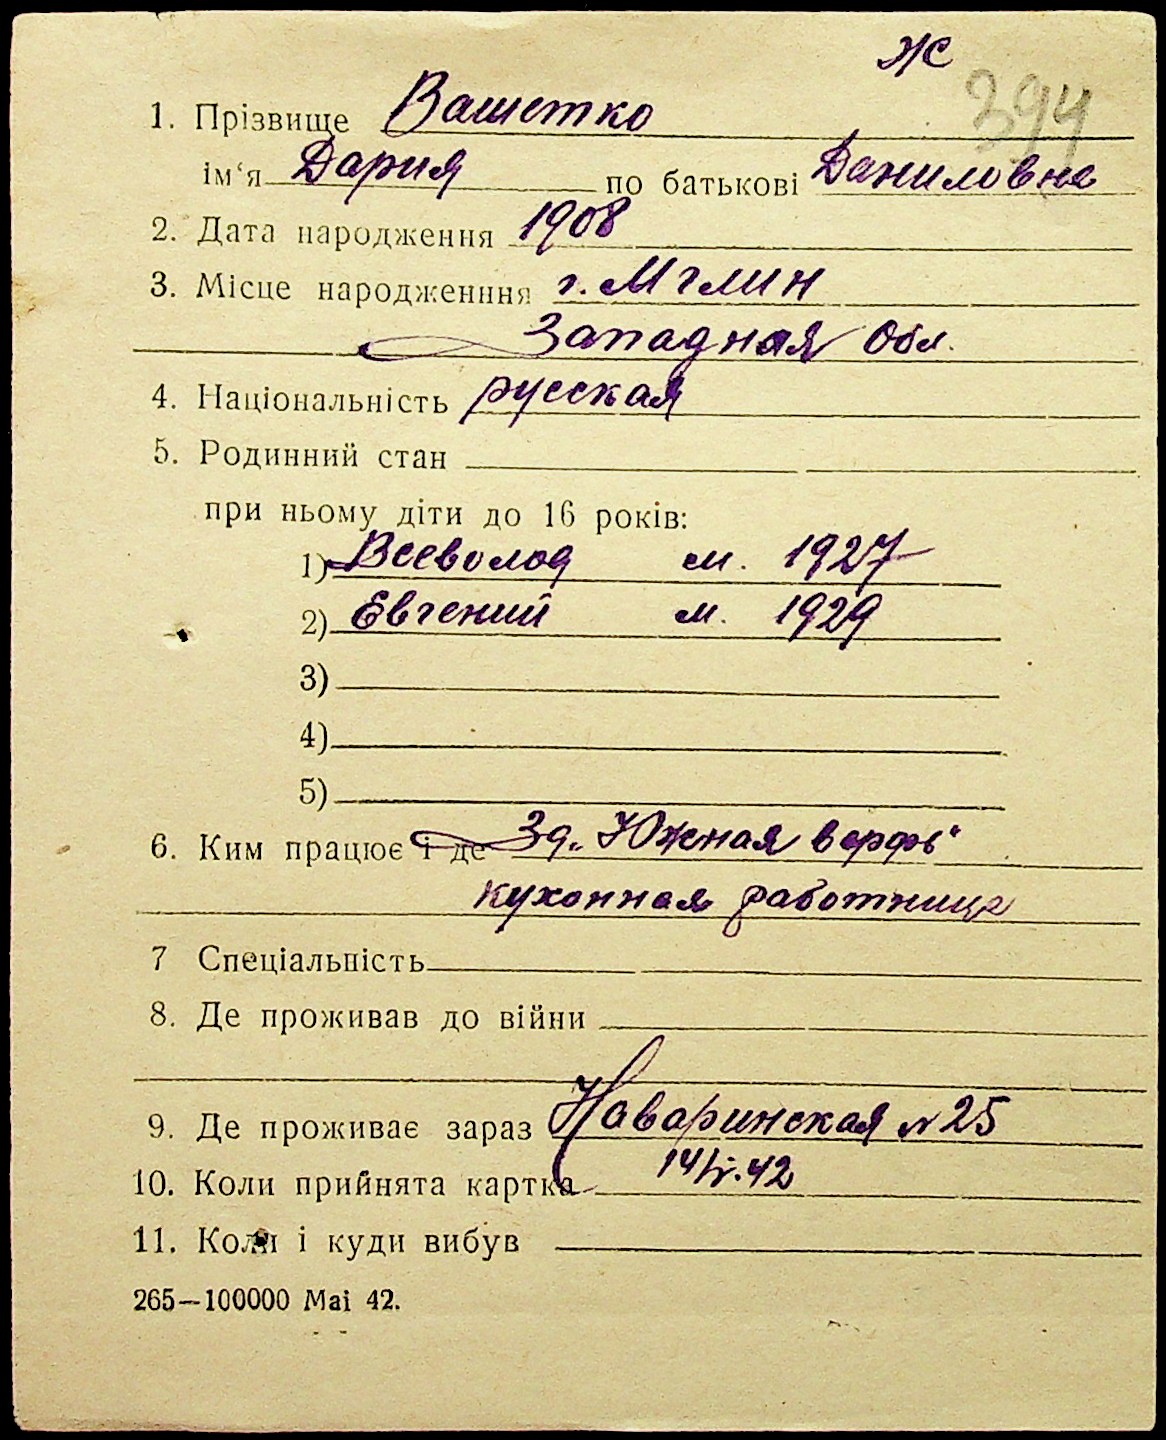 ж
394
1. Прізвище Вашетко
ім‘я Дария по батькові Даниловна
2. Дата народження 1908
3. Місце народженння г. Мглин
Западная Обл.
4. Національність русская
5. Родинний стан
при ньому діти до 16 років:
1) Всеволод м. 1927
2) Евгений м. 1929
3)
4)
5)
6. Ким працює і де Зд „Южная верфь"
кухонная работница
7 Спеціальність
8. Де проживав до війни
9. Де проживає зараз Наваринская N 25
10. Коли прийнята картка 14/V.42
11. Коли і куди вибув
265—100000 Mai 42.